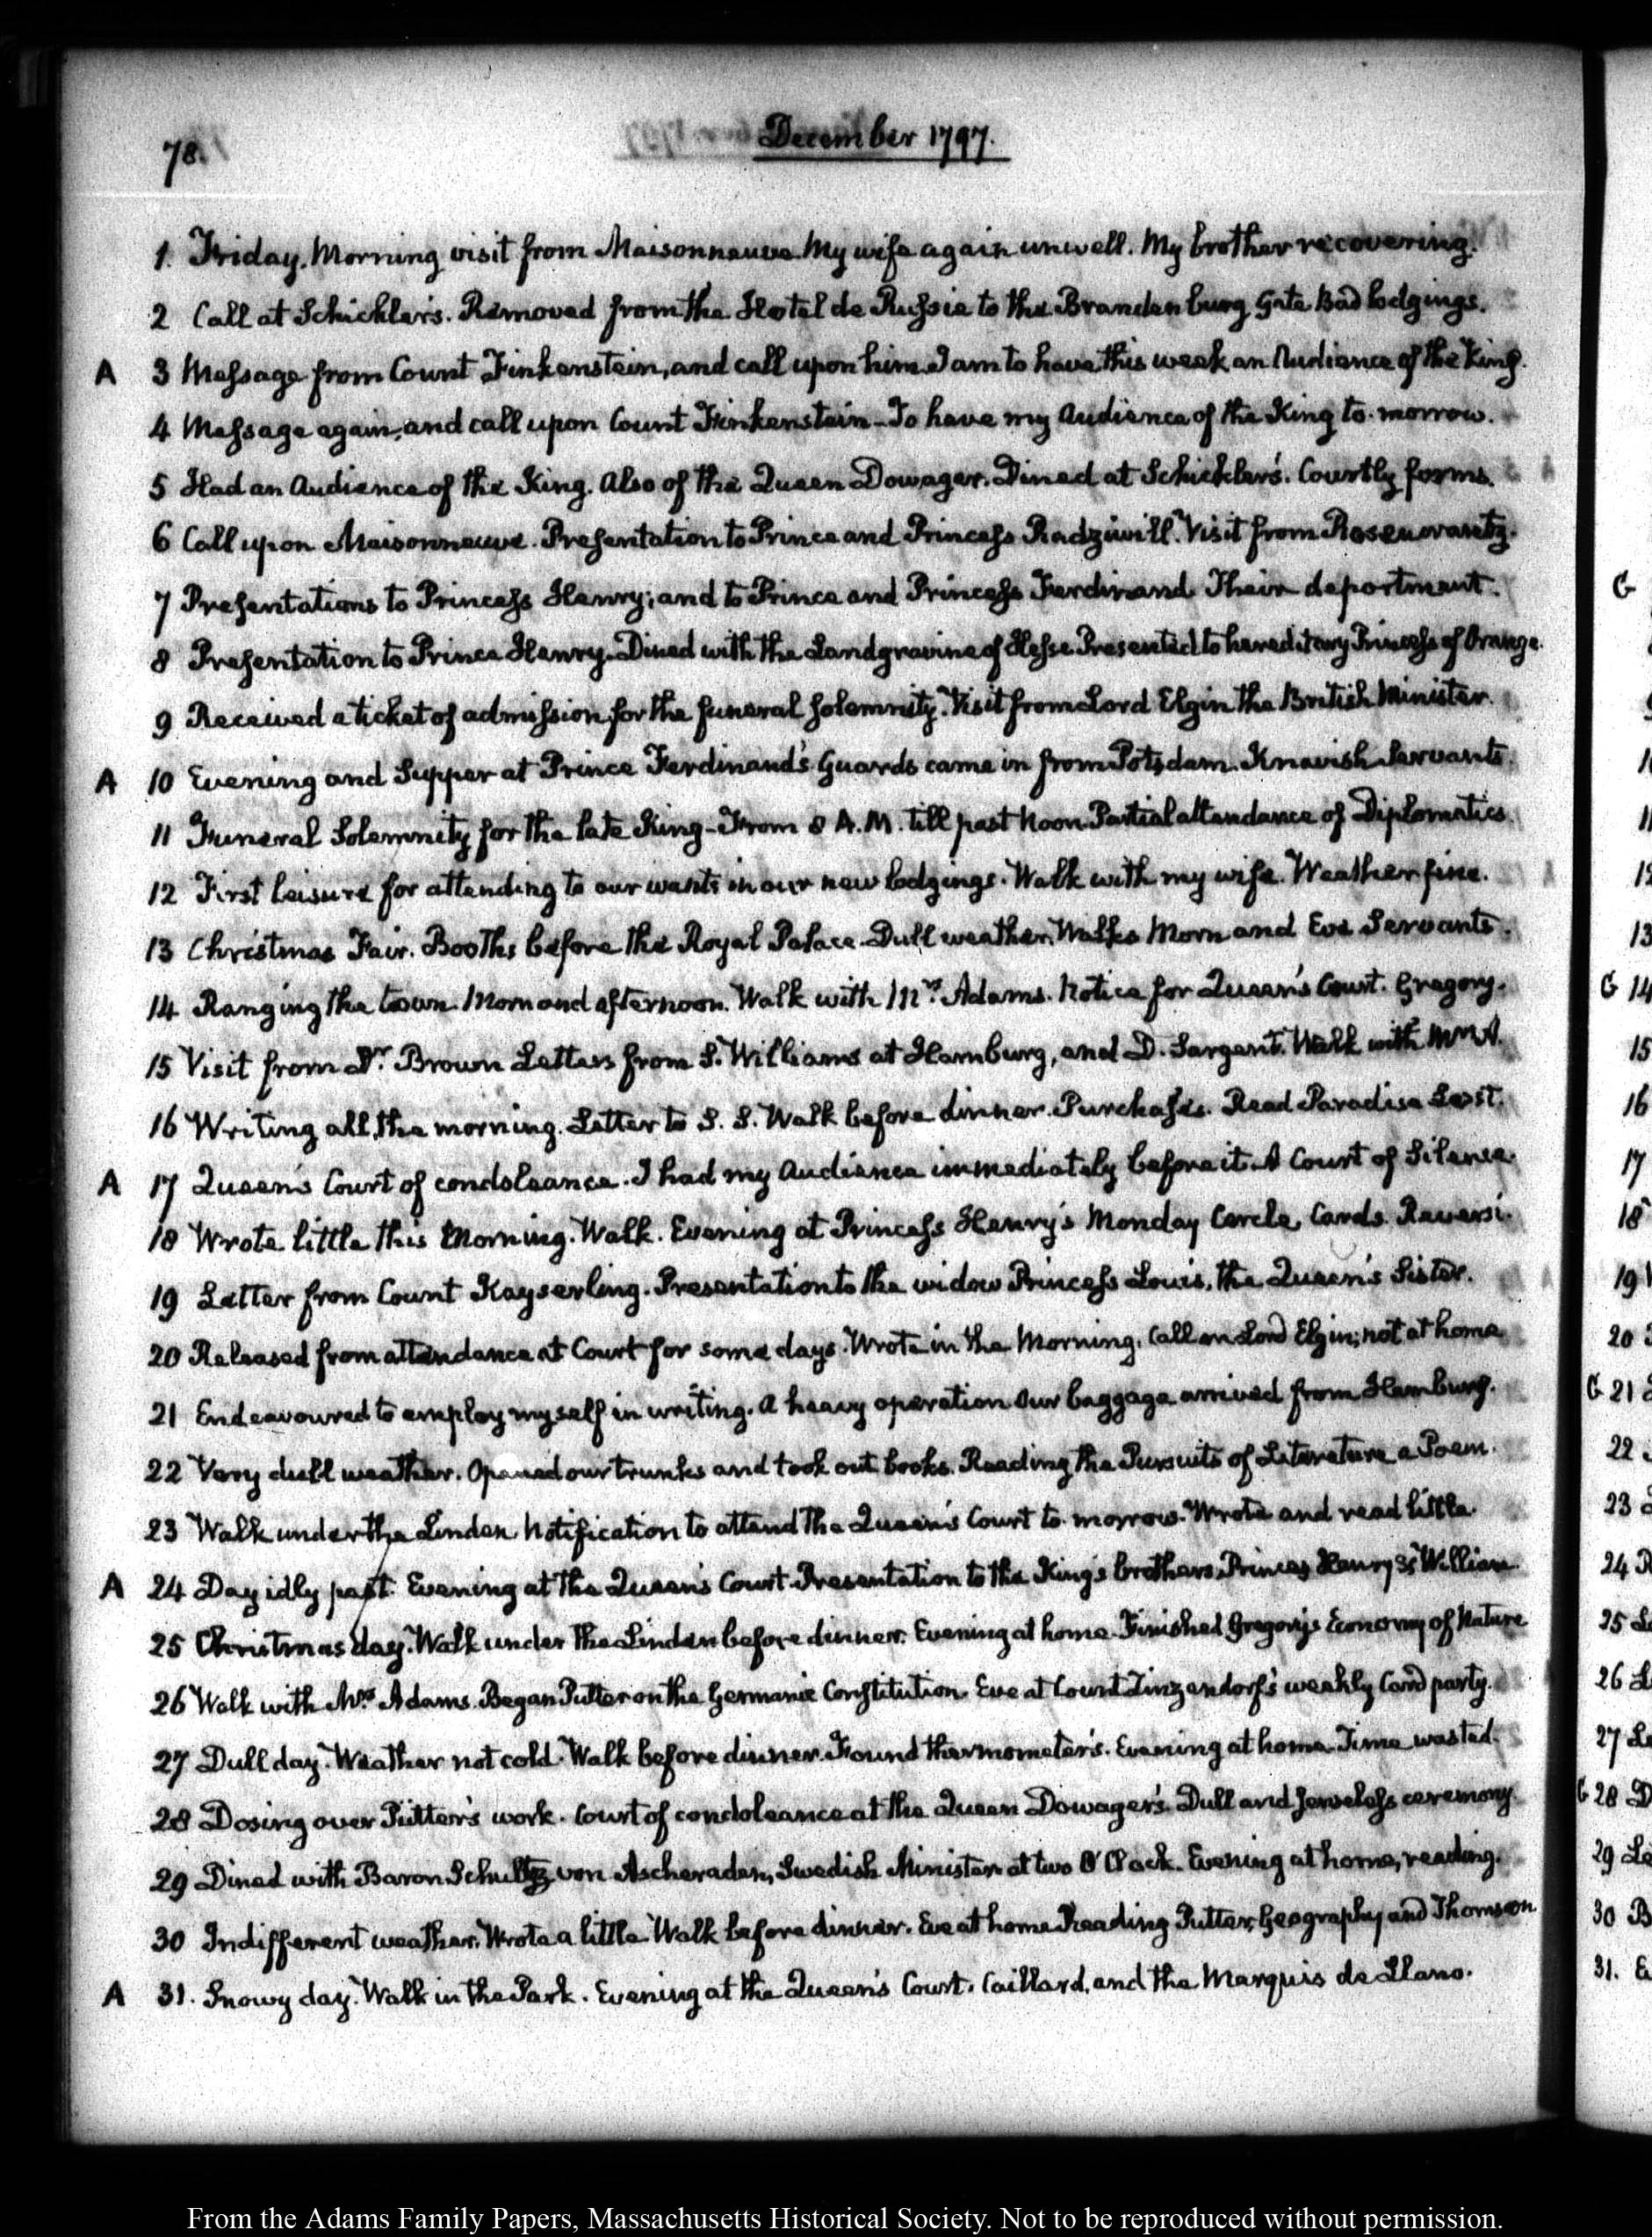 78.
December 1797.
1. Friday. Morning visit from Maisonneuve. My wife again unwell. My brother recovering.
2 Call at Schickler's. Removed from the Hotel de Russie to the Brandenburg Gate. Bad lodgings.
A 3 Message from Count Finkenstein, and call upon him. I am to have this week an Audience of the King.
4 Message again, and call upon Count Finkenstein - To have my Audience of the King to-morrow.
5 Had an Audience of the King. Also of the Queen Dowager. Dined at Schickler's. Courtly forms.
6 Call upon Maisonneuve. Presentation to Prince and Princess Radziwill. Visit from Rosencrantz.
7 Presentations to Princess Henry; and to Prince and Princess Ferdinand. Their deportment.
8 Presentation to Prince Henry. Dined with the Landgravine of Hesse. Presented to hereditary Princess of Orange.
9 Received a ticket of admission for the funeral solemnity. Visit from Lord Elgin the British Minister.
A 10 Evening and Supper at Prince Ferdinand's. Guards came in from Potsdam. Knavish Servants.
11 Funeral Solemnity for the late King - From 8 A.M. till past Noon. Partial attendance of Diplomatics.
12 First leisure for attending to our wants in our new lodgings. Walk with my wife. Weather fine.
13 Christmas Fair. Booths before the Royal Palace. Dull weather. Walks Morn and Eve. Servants.
14 Ranging the town. Morn and afternoon. Walk with Mrs. Adams. Notice for Queen's Court. Gregory.
15 Visit from Dr. Brown. Letters from S. Williams at Hamburg, and D. Sargent. Walk with Mrs A.
16 Writing all the morning. Letter to S. S. Walk before dinner. Purchases. Read Paradise Lost.
A 17 Queen's Court of condoleance. I had my Audience immediately before it. A Court of Silence.
18 Wrote little this Morning. Walk. Evening at Princess Henry's Monday Circle. Cards. Reversi.
19 Letter from Count Kayserling. Presentation to the widow Princess Louis, the Queen's Sister.
20 Released from attendance at Court for some days. Wrote in the Morning. Call on Lord Elgin; not at home
21 Endeavoured to employ myself in writing. A heavy operation. Our baggage arrived from Hamburg.
22 Very dull weather. Opened our trunks and took out books. Reading the Pursuits of Literature a Poem.
23 Walk under the Linden. Notification to attend the Queen's Court to-morrow. Wrote and read little.
A 24 Day idly past. Evening at the Queen's Court. Presentation to the King's brothers, Princes Henry & William.
25 Christmas day. Walk under the Linden before dinner. Evening at home. Finished Gregory's Economy of Nature
26 Walk with Mrs Adams. Began Putter on the Germanic Constitution. Eve at Count Zinzendorf's weekly Card party.
27 Dull day. Weather not cold. Walk before dinner. Found thermometer's. Evening at home. Time wasted.
28 Dosing over Pütter's work. Court of condoleance at the Queen Dowager's. Dull and senseless ceremony.
29 Dined with Baron Schultz von Ascheraden, Swedish Minister at two O'Clock. Evening at home, reading.
30 Indifferent weather. Wrote a little. Walk before dinner. Eve at home. Reading Putter, Geography and Thomson
A 31. Snowy day. Walk in the Park. Evening at the Queen's Court. Caillard, and the Marquis de Llano.
From the Adams Family Papers, Massachusetts Historical Society. Not to be reproduced without permission.